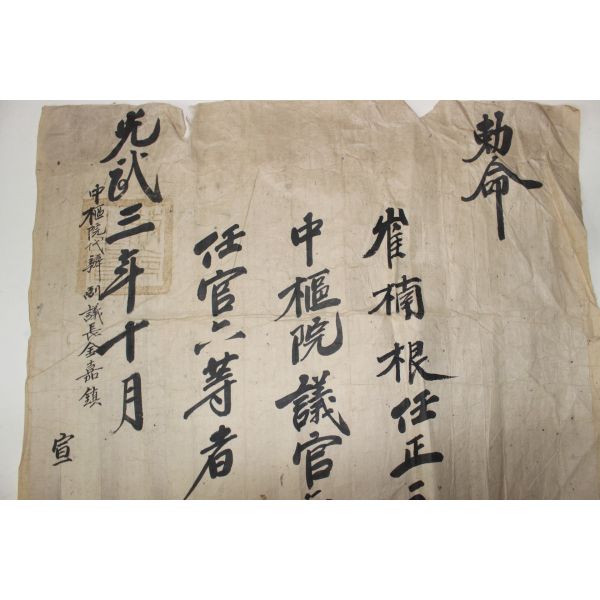 勅命
崔楠根任正三
中樞院議官
任官六等者
光武三年十月
中樞院代辦副議長金嘉鎮
宣